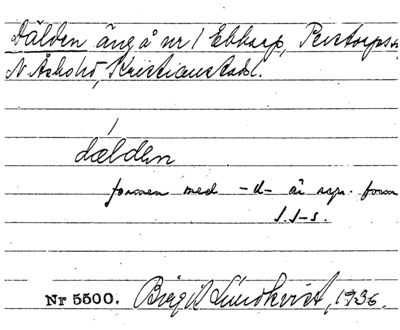 Dälden äng å nr 1 Ebbarp, Perstorps sn,
N Åsbo hd, Kristianstads l.
dælden
formen med -d- är rspr. form
S.S-s.
Nr 5500. Birgit Lundkvist, 1936.